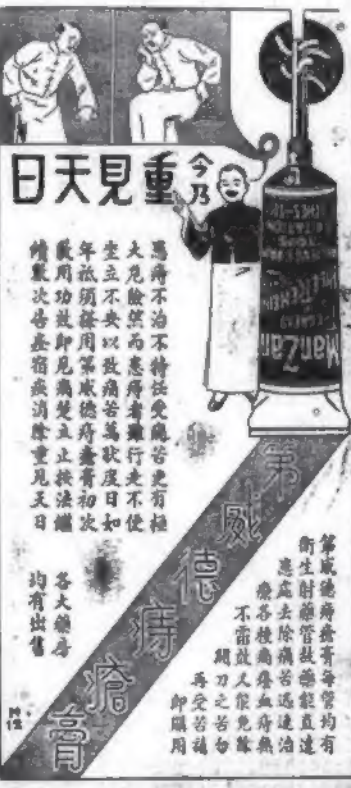 今乃
重見天日
患痔不治不特任受痛苦更有極
大危險然而患痔者雖行走不便
坐立不安以致痛苦萬狀度日如
年祇須搽用第威德痔瘡膏初次
敷用功效即見痛楚立止按法繼
續數次告盡宿疾消除重見天日
各大藥房
均有出售
ManZan
第威德痔瘡膏
第威德痔瘡膏每管均有
衛生射藥管故藥能直達
患處去除痛苦迅速治
療各種痔瘡血痔無
不靈效人能免除
開刀之苦勿
再受苦請
即購用
M12